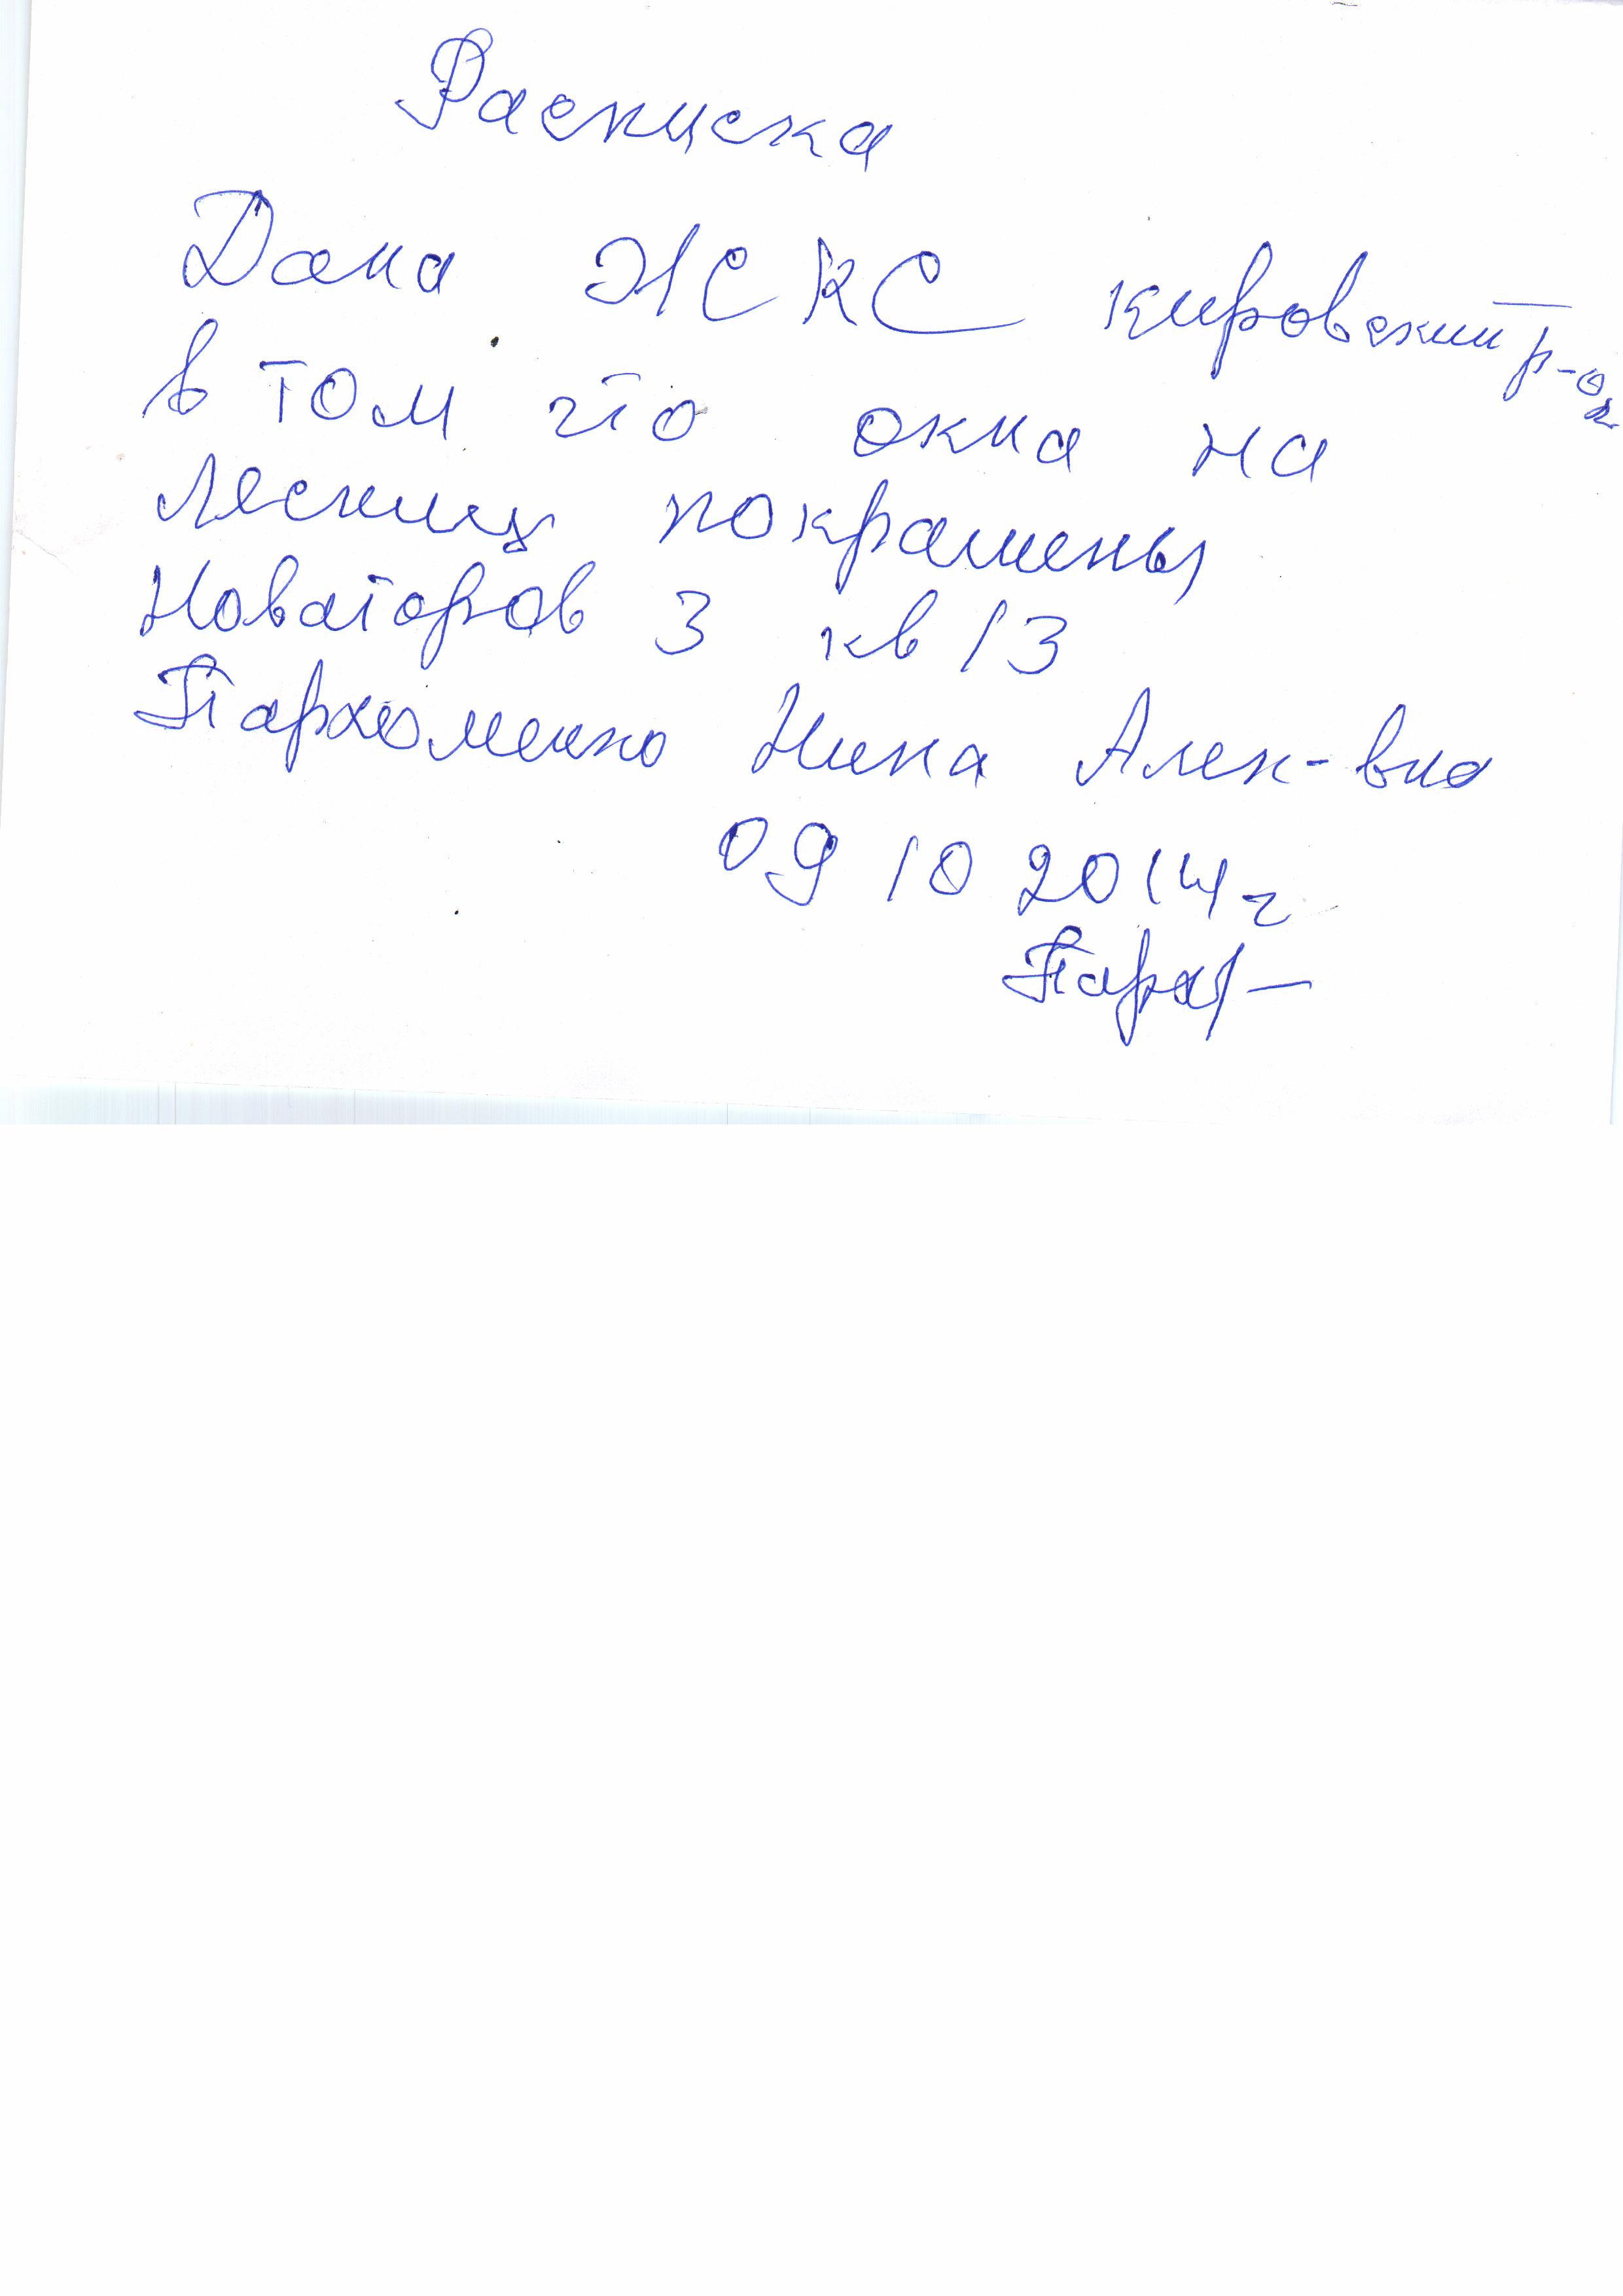 Расписка
Дана ЖСКС кировский р-он
в том что окна на
лесницу покрашены
Новаторов 3 кв 13
Пархоменко Нина Алек-вна
09 10 2014 г
Парх